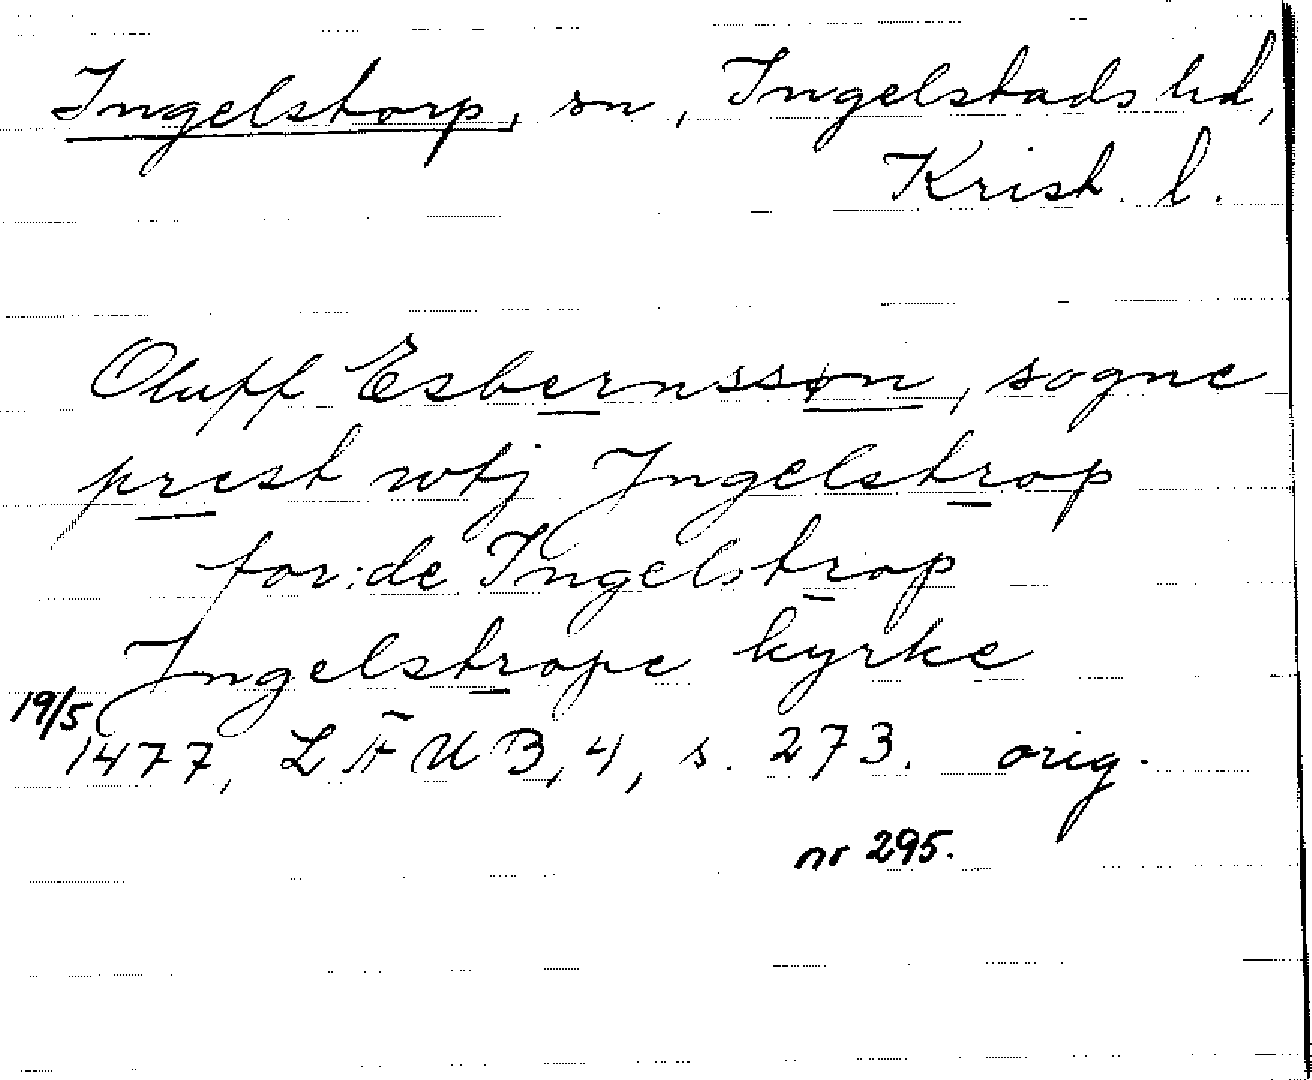 Ingelstorp, sn, Ingelstads hd,
Krist. l.
Oluff Esbernssøn, sogne
prest wtj Ingelstrop
for:de Ingelstrop
Ingelstrope kyrke
19/5
1477, LÄUB, 4, s. 273. orig.
nr 295.